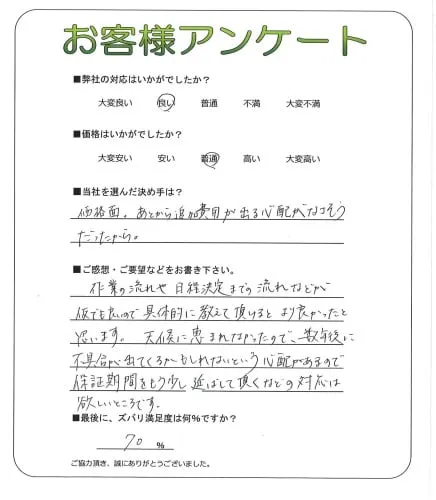 お客様アンケート
■弊社の対応はいかがでしたか?
大変良い 良い 普通 不満 大変不満
■価格はいかがでしたか?
大変安い 安い 普通 高い 大変高い
■当社を選んだ決め手は?
価格面。あとから追加費用が出る心配がなさそう
だったから。
■ご感想・ご要望などをお書き下さい。
作業の流れや日程決定までの流れなどが
仮でも良いので具体的に教えて頂けるとより良かったと
思います。天候に恵まれなかったので、数年後に
不具合が出てくるかもしれないという心配があるので
保証期間をもう少し延ばして頂くなどの対応は
欲しいところです。
■最後に、ズバリ満足度は何%ですか?
70 %
ご協力頂き、誠にありがとうございました。